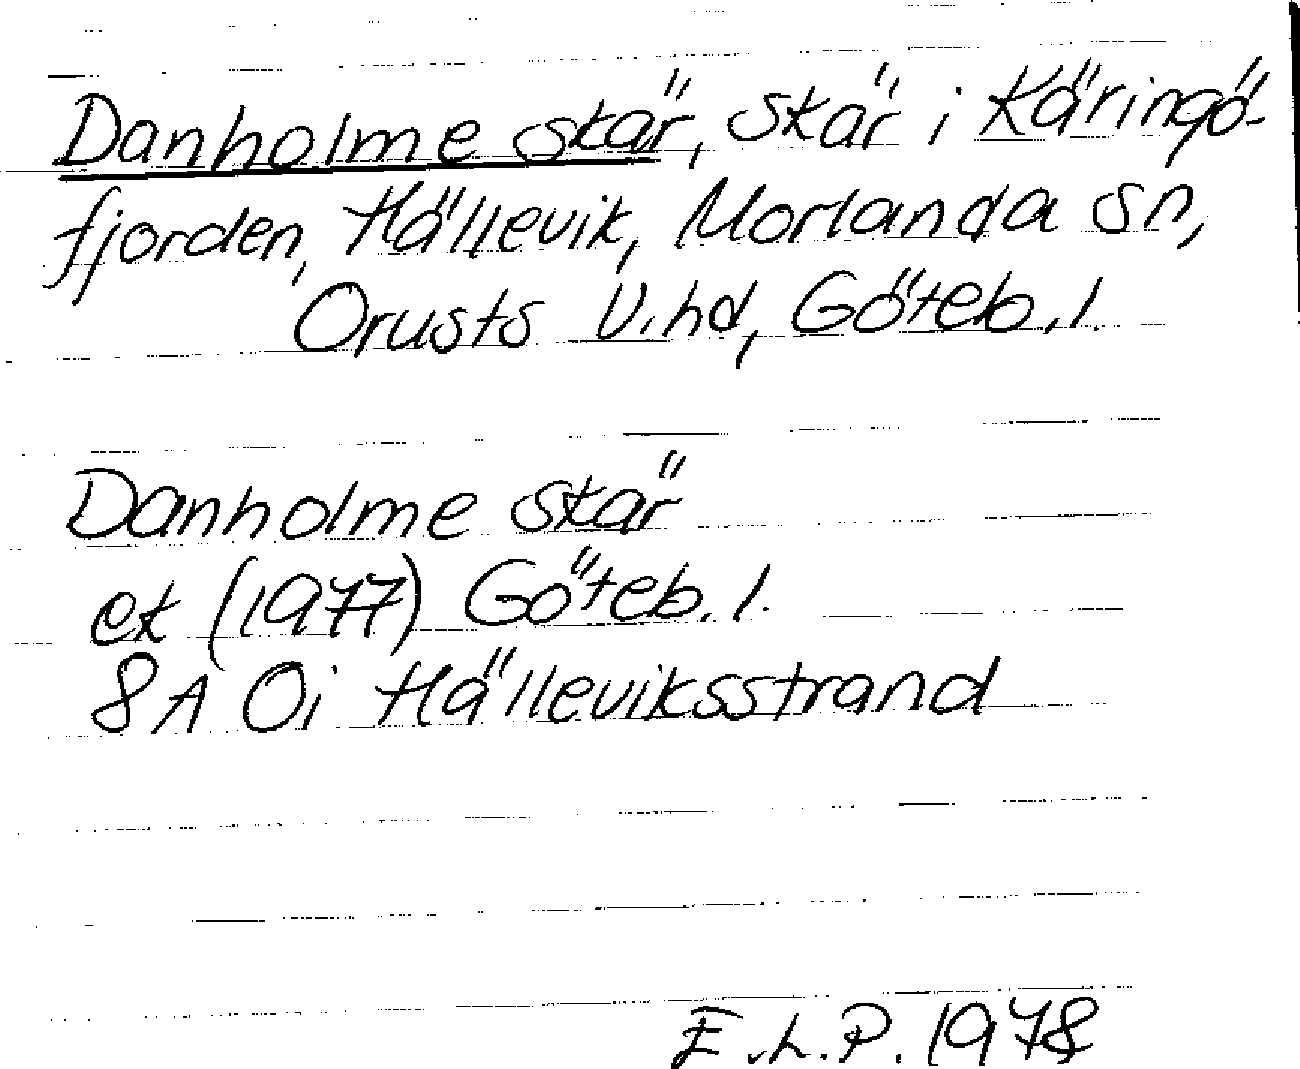 Danholme skär, skär i Käringö-
fjorden, Hällevik, Morlanda sn,
Orusts V. hd, Göteb. l.
Danholme skär
ek (1977) Göteb. l.
8A 0i Hälleviksstrand
E.L.P. 1978